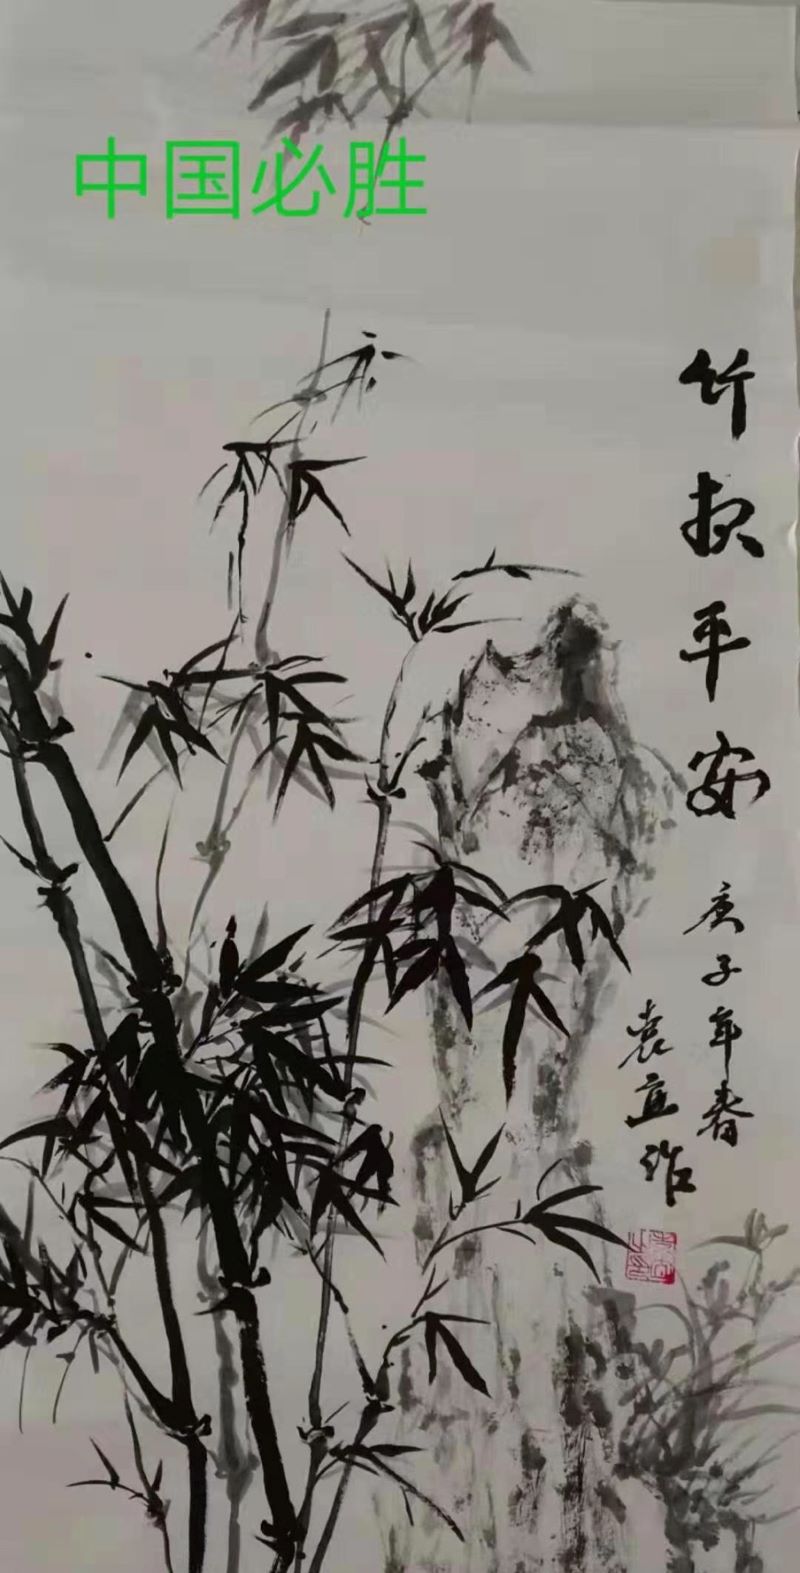 中国必胜
竹报平安
庚子年春
袁宜作